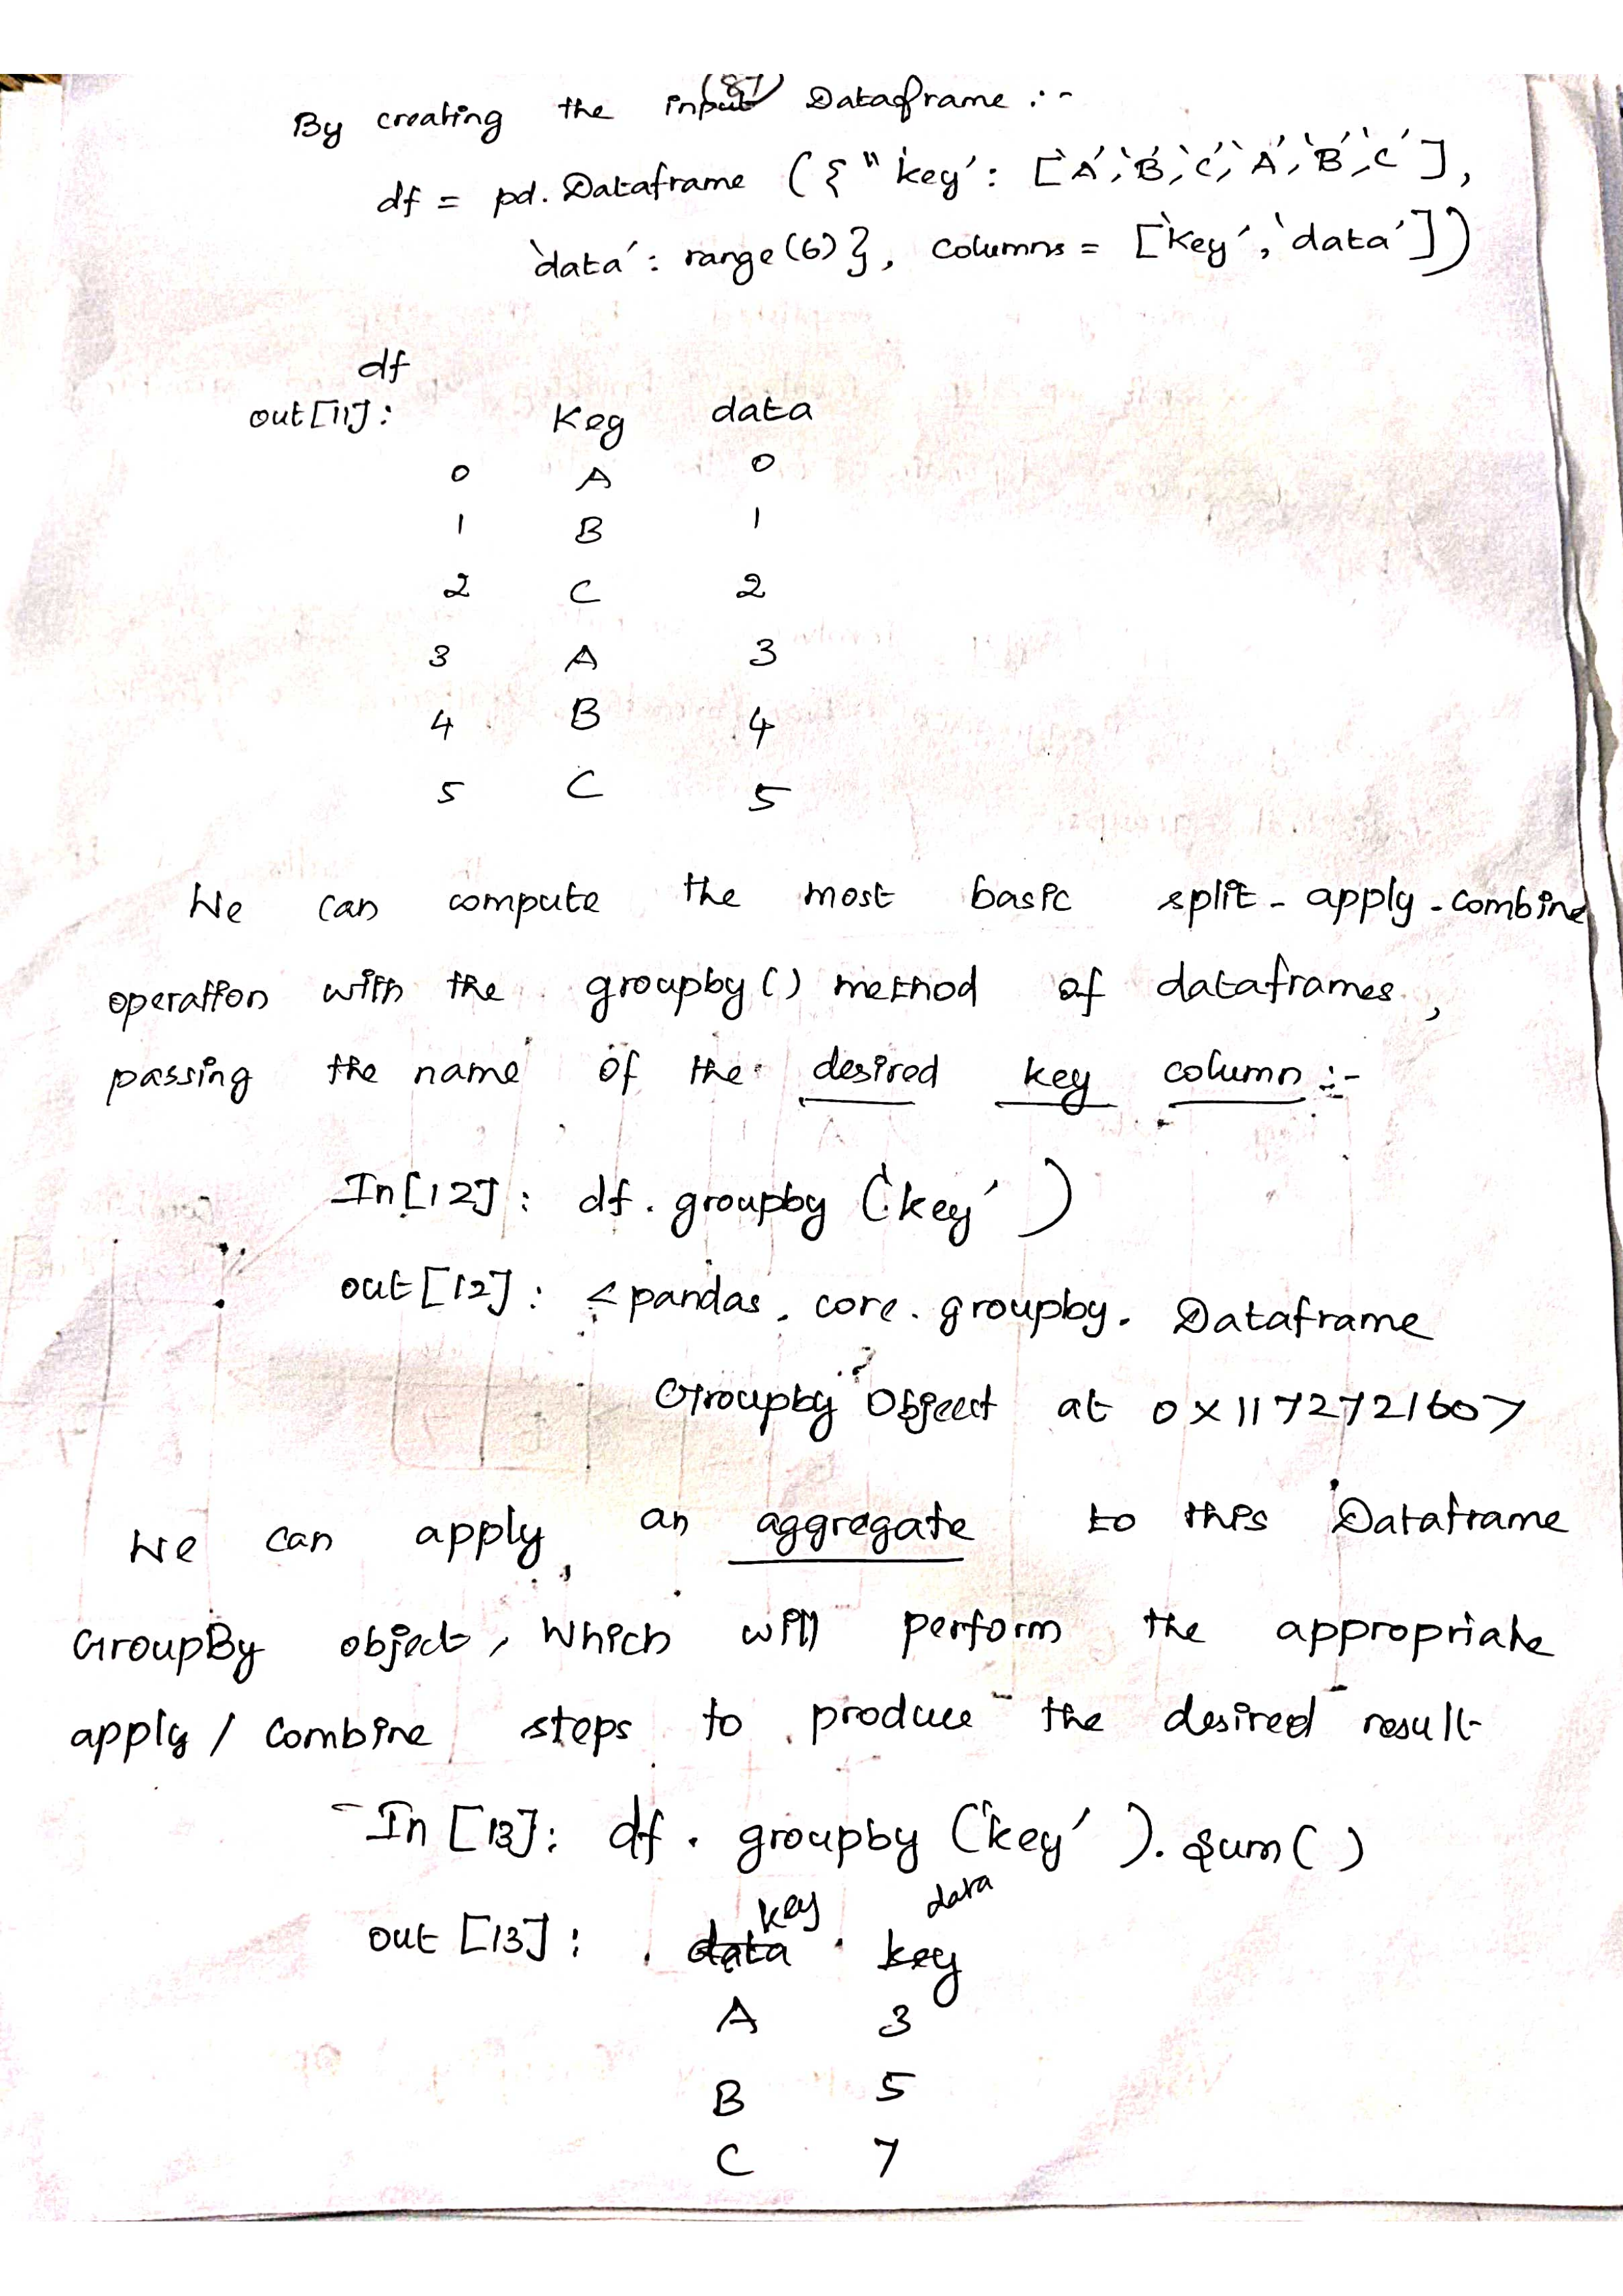 (87)
By creating the input Dataframe :-
df = pd. Dataframe ({" key': ['A', 'B', 'C', 'A', 'B', 'C'],
'data': range(6)}, columns = ['key', 'data'])
df
out[11]: Key data
0 A 0
1 B 1
2 C 2
3 A 3
4 B 4
5 C 5
We can compute the most basic split - apply - combine
operation with the groupby() method of dataframes,
passing the name of the desired key column :-
In[12]: df. groupby ('key')
out[12]: <pandas. core. groupby. Dataframe
Groupby Object at 0x117272160>
We can apply an aggregate to this Dataframe
GroupBy object, which will perform the appropriate
apply / combine steps to produce the desired result
In [13]: df. groupby ('key'). sum()
key data
out [13]: data key
A 3
B 5
C 7